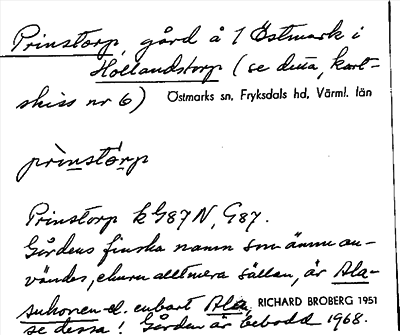 Prinstorp, gård å 1 Östmark i
Hollandstorp (se detta, kart-
skiss nr 6) Östmarks sn, Fryksdals hd, Värml. län
prìnstórp
Prinstorp k G87N, G87.
Gårdens finska namn som ännu an-
vändes, ehuru alltmera sällan, är Ala-
suhonen el. enbart Ala, RICHARD BROBERG 1951
se dessa! Gården är bebodd 1968.